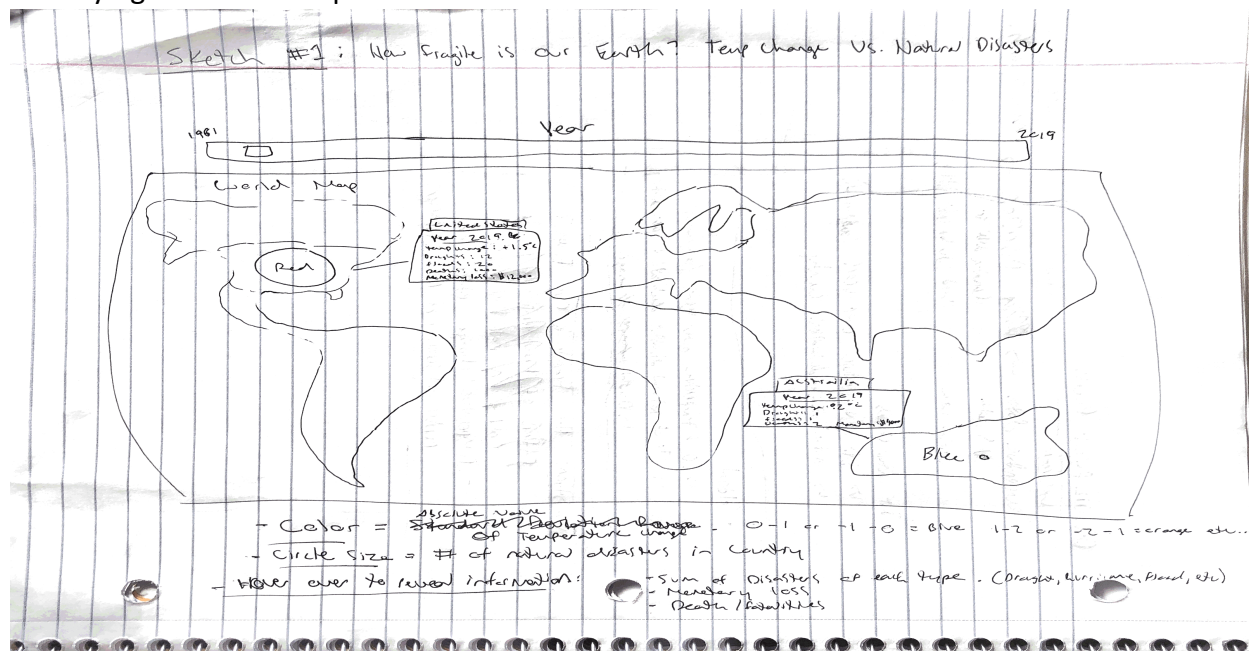 Sketch #1: How fragile is our Earth? Temp change Vs. Natural Disasters
Year
1981
2019
World Map
United States
Year 2019
Temp change: +1.5°C
Droughts: 12
Floods: 20
Deaths: 1000
Monetary loss: $12,000
Red
Australia
Year 2019
Temp change:
Droughts: 1
Floods: 1
Deaths: 2
Blue
Absolute Value
- Color = Standard Deviation Range 0-1 or -1-0 = Blue 1-2 or -2-1 = orange etc...
Of Temperature change
- Circle Size = # of natural disasters in country
- Hover over to reveal information: - Sum of Disasters of each type. (Drought, Hurricane, Flood, etc)
- Monetary loss
- Death/fatalities